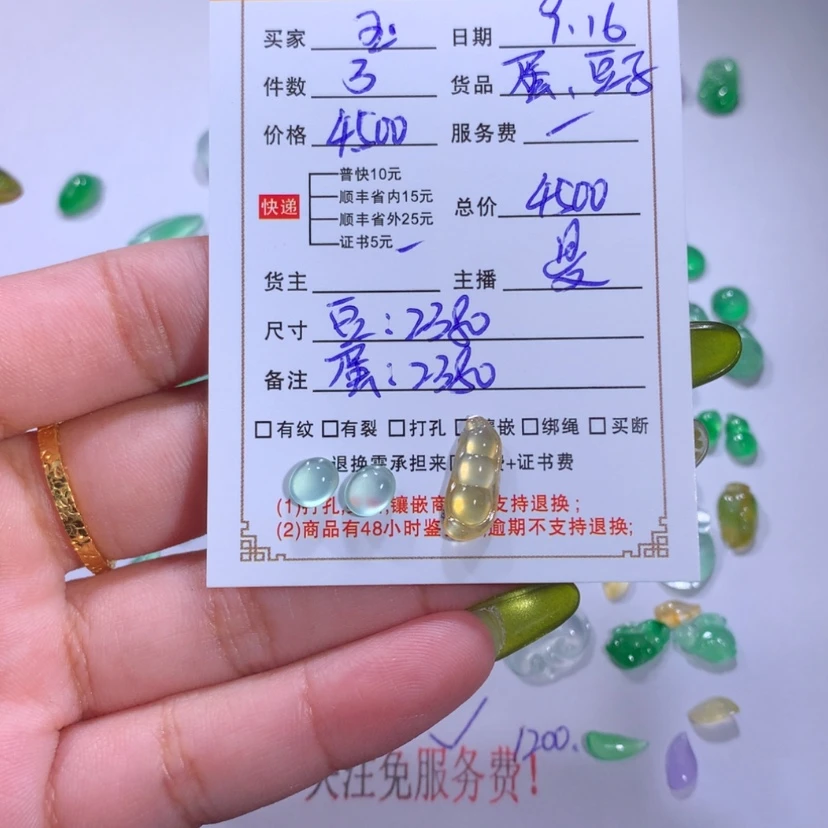 买家 玉 日期 9.16
件数 3 货品 蛋、豆子
价格 4500 服务费
普快10元
顺丰省内15元
快递 总价 4500
顺丰省外25元
证书5元
货主 主播
尺寸 豆:2380
备注 蛋:2380
□有纹 □有裂 □打孔 嵌 □绑绳 □买断
退换需承担来 +证书费
(1)打孔 镶嵌商 支持退换;
(2)商品有48小时鉴 逾期不支持退换;
1200.
关注免服务费!